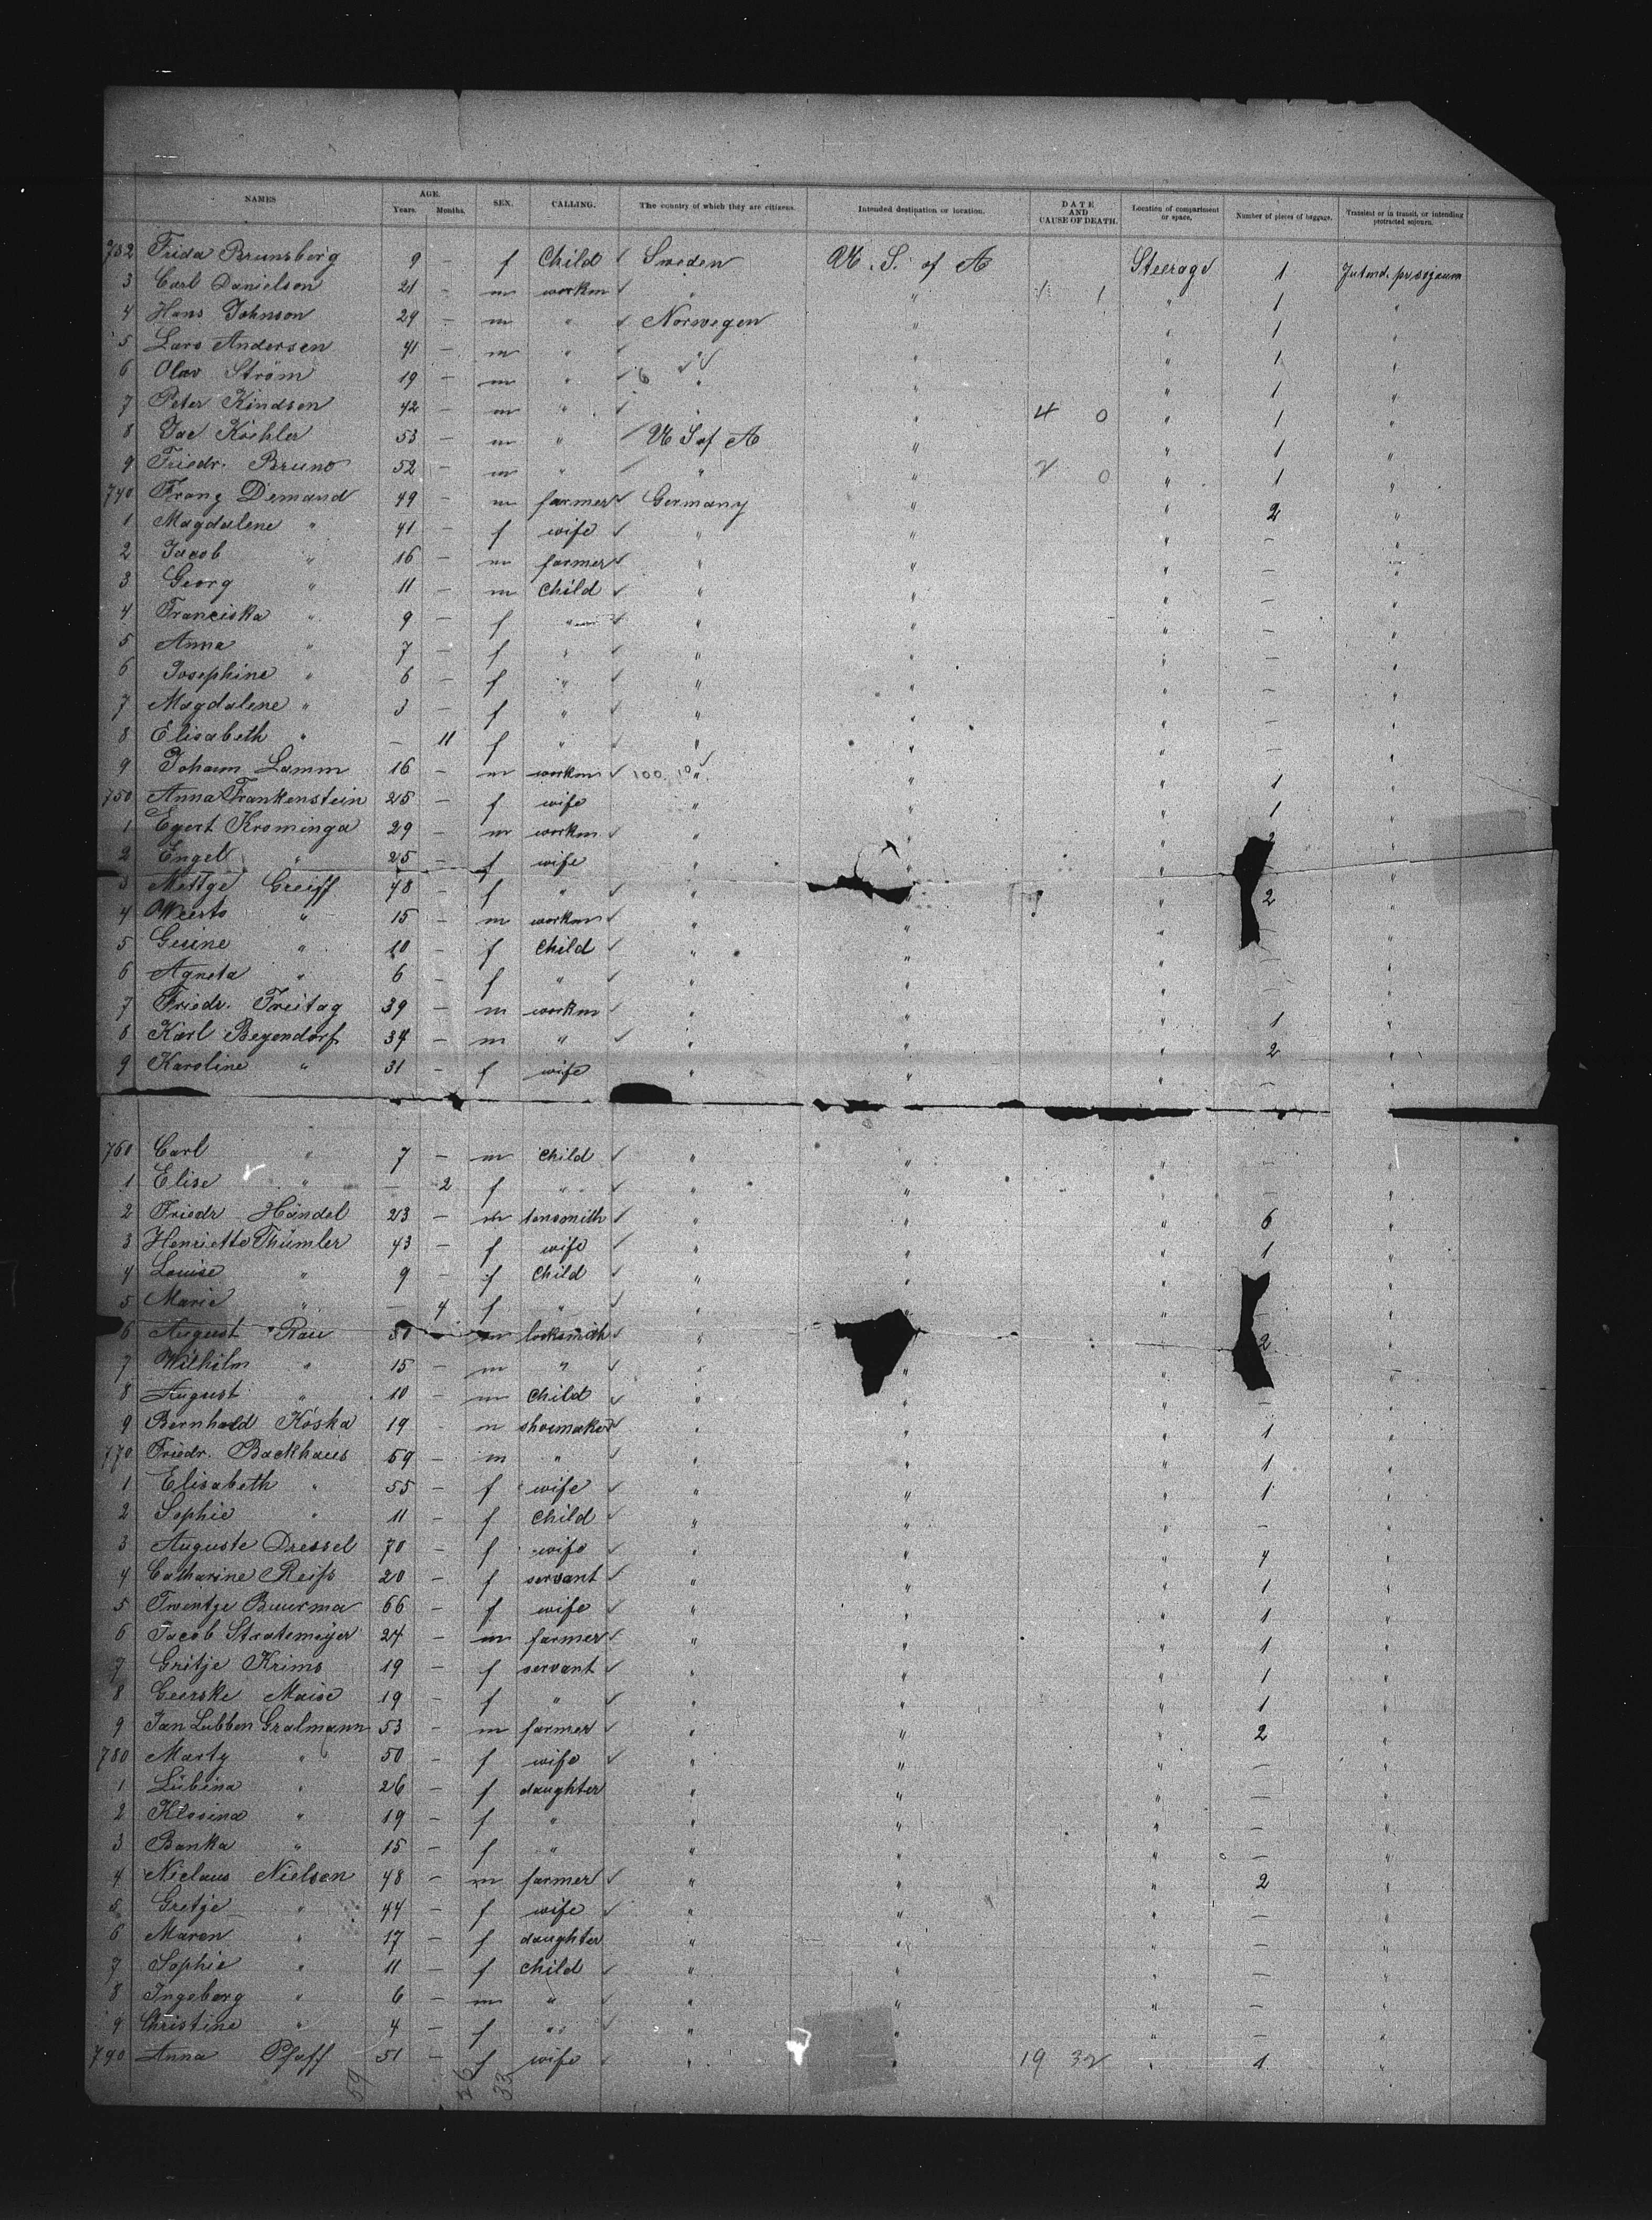 NAMES AGE. Years. Months. SEX. CALLING. The country of which they are citizens. Intended destination or location. DATE AND CAUSE OF DEATH. Location of compartment or space. Number of pieces of baggage. Transient or in transit, or intending protracted sojourn.
732 Frida Brunsberg 9 – f Child ✓ Sweden U. S. of A Steerage 1
3 Carl Danielson 21 – m workm ✓ " " 1 1 " 1 "
4 Hans Johnson 29 – m " ✓ Norwegen " " 1 "
5 Lars Andersen 41 – m " ✓ " " " 1 "
6 Olav Ström 19 – m " ✓ 6 " " " 1 "
7 Peter Kindson 42 – m " ✓ " " 4 0 " 1 "
8 Jac Köehler 53 – m " ✓ U S of A " " 1 "
9 Friedr. Bruno 52 – m " ✓ " " 2 0 " 1 "
740 Franz Demand 49 – m farmer ✓ Germany " " 2 "
1 Magdalene " 41 – f wife ✓ " " " – "
2 Jacob " 16 – m farmer ✓ " " " – "
3 Georg " 11 – m Child ✓ " " " – "
4 Franciska " 9 – f " ✓ " " " – "
5 Anna " 7 – f " ✓ " " " – "
6 Josephine " 6 – f " ✓ " " " – "
7 Magdalene " 3 – f " ✓ " " " – "
8 Elisabeth " – 11 f " ✓ " " " – "
9 Johann Lamm 16 – m workm ✓ 100 10 " " " 1 "
750 Anna Frankenstein 25 – f wife " " " 1 "
1 Egert Krominga 29 – m workm ✓ " " " 2 "
2 Engel " 25 – f wife " " " "
3 Mettge Greiff 48 – f " ✓ " " " 2 "
4 Weerts " 15 – m workm ✓ " " " – "
5 Gesine " 10 – f Child ✓ " " " – "
6 Agneta " 6 – f " ✓ " " " – "
7 Friedr. Freitag 39 – m workm ✓ " " " 1 "
8 Karl Begendorf 34 – m " ✓ " " " 2 "
9 Karoline " 31 – f wife " " " – "
760 Carl " 7 – m Child ✓ " " " – "
1 Elise " – 2 f " ✓ " " " – "
2 Friedr Händel 23 – m ✓ " " " 6 "
3 Henriette Thümler 43 – f wife ✓ " " " 1 "
4 Louise " 9 – f Child ✓ " " " "
5 Marie " – 4 f " ✓ " " " – "
6 August Rau 50 – m locksmith ✓ " " 2
7 Wilhelm " 15 – m " ✓ " " " "
8 August " 10 – m Child ✓ " " " – "
9 Bernhard Koska 19 – m shoemaker ✓ " " " 1 "
770 Friedr. Backhaus 59 – m " ✓ " " " 1 "
1 Elisabeth " 55 – f wife ✓ " " " 1 "
2 Sophie " 11 – f Child ✓ " " " – "
3 Auguste Dressel 70 – f wife ✓ " " " 4 "
4 Catharine Reiſs 20 – f servant ✓ " " " 1 "
5 Twentje Buurma 66 – f wife ✓ " " " 1 "
6 Jacob Stratemeyer 24 – m farmer ✓ " " " 1 "
7 Gritje Krims 19 – f servant ✓ " " " 1 "
8 Geerske Maise 19 – f " ✓ " " " 1 "
9 Jan Lubben Gralmann 53 – m farmer ✓ " " " 2 "
780 Marty " 50 – f wife ✓ " " " – "
1 Lübina " 26 – f daughter " " " – "
2 Klosina " 19 – f " " " " – "
3 Banka " 15 – f " " " " – "
4 Niclaus Nielsen 48 – m farmer ✓ " " " 2 "
5 Gretje " 44 – f wife ✓ " " " – "
6 Maren " 17 – f daughter " " " – "
7 Sophie " 11 – f Child ✓ " " " – "
8 Ingeborg " 6 – m " ✓ " " " – "
9 Christine " 4 – f " ✓ " " " – "
790 Anna Pfaff 51 – f wife ✓ " " 19 32 " 1 "
59 26 33